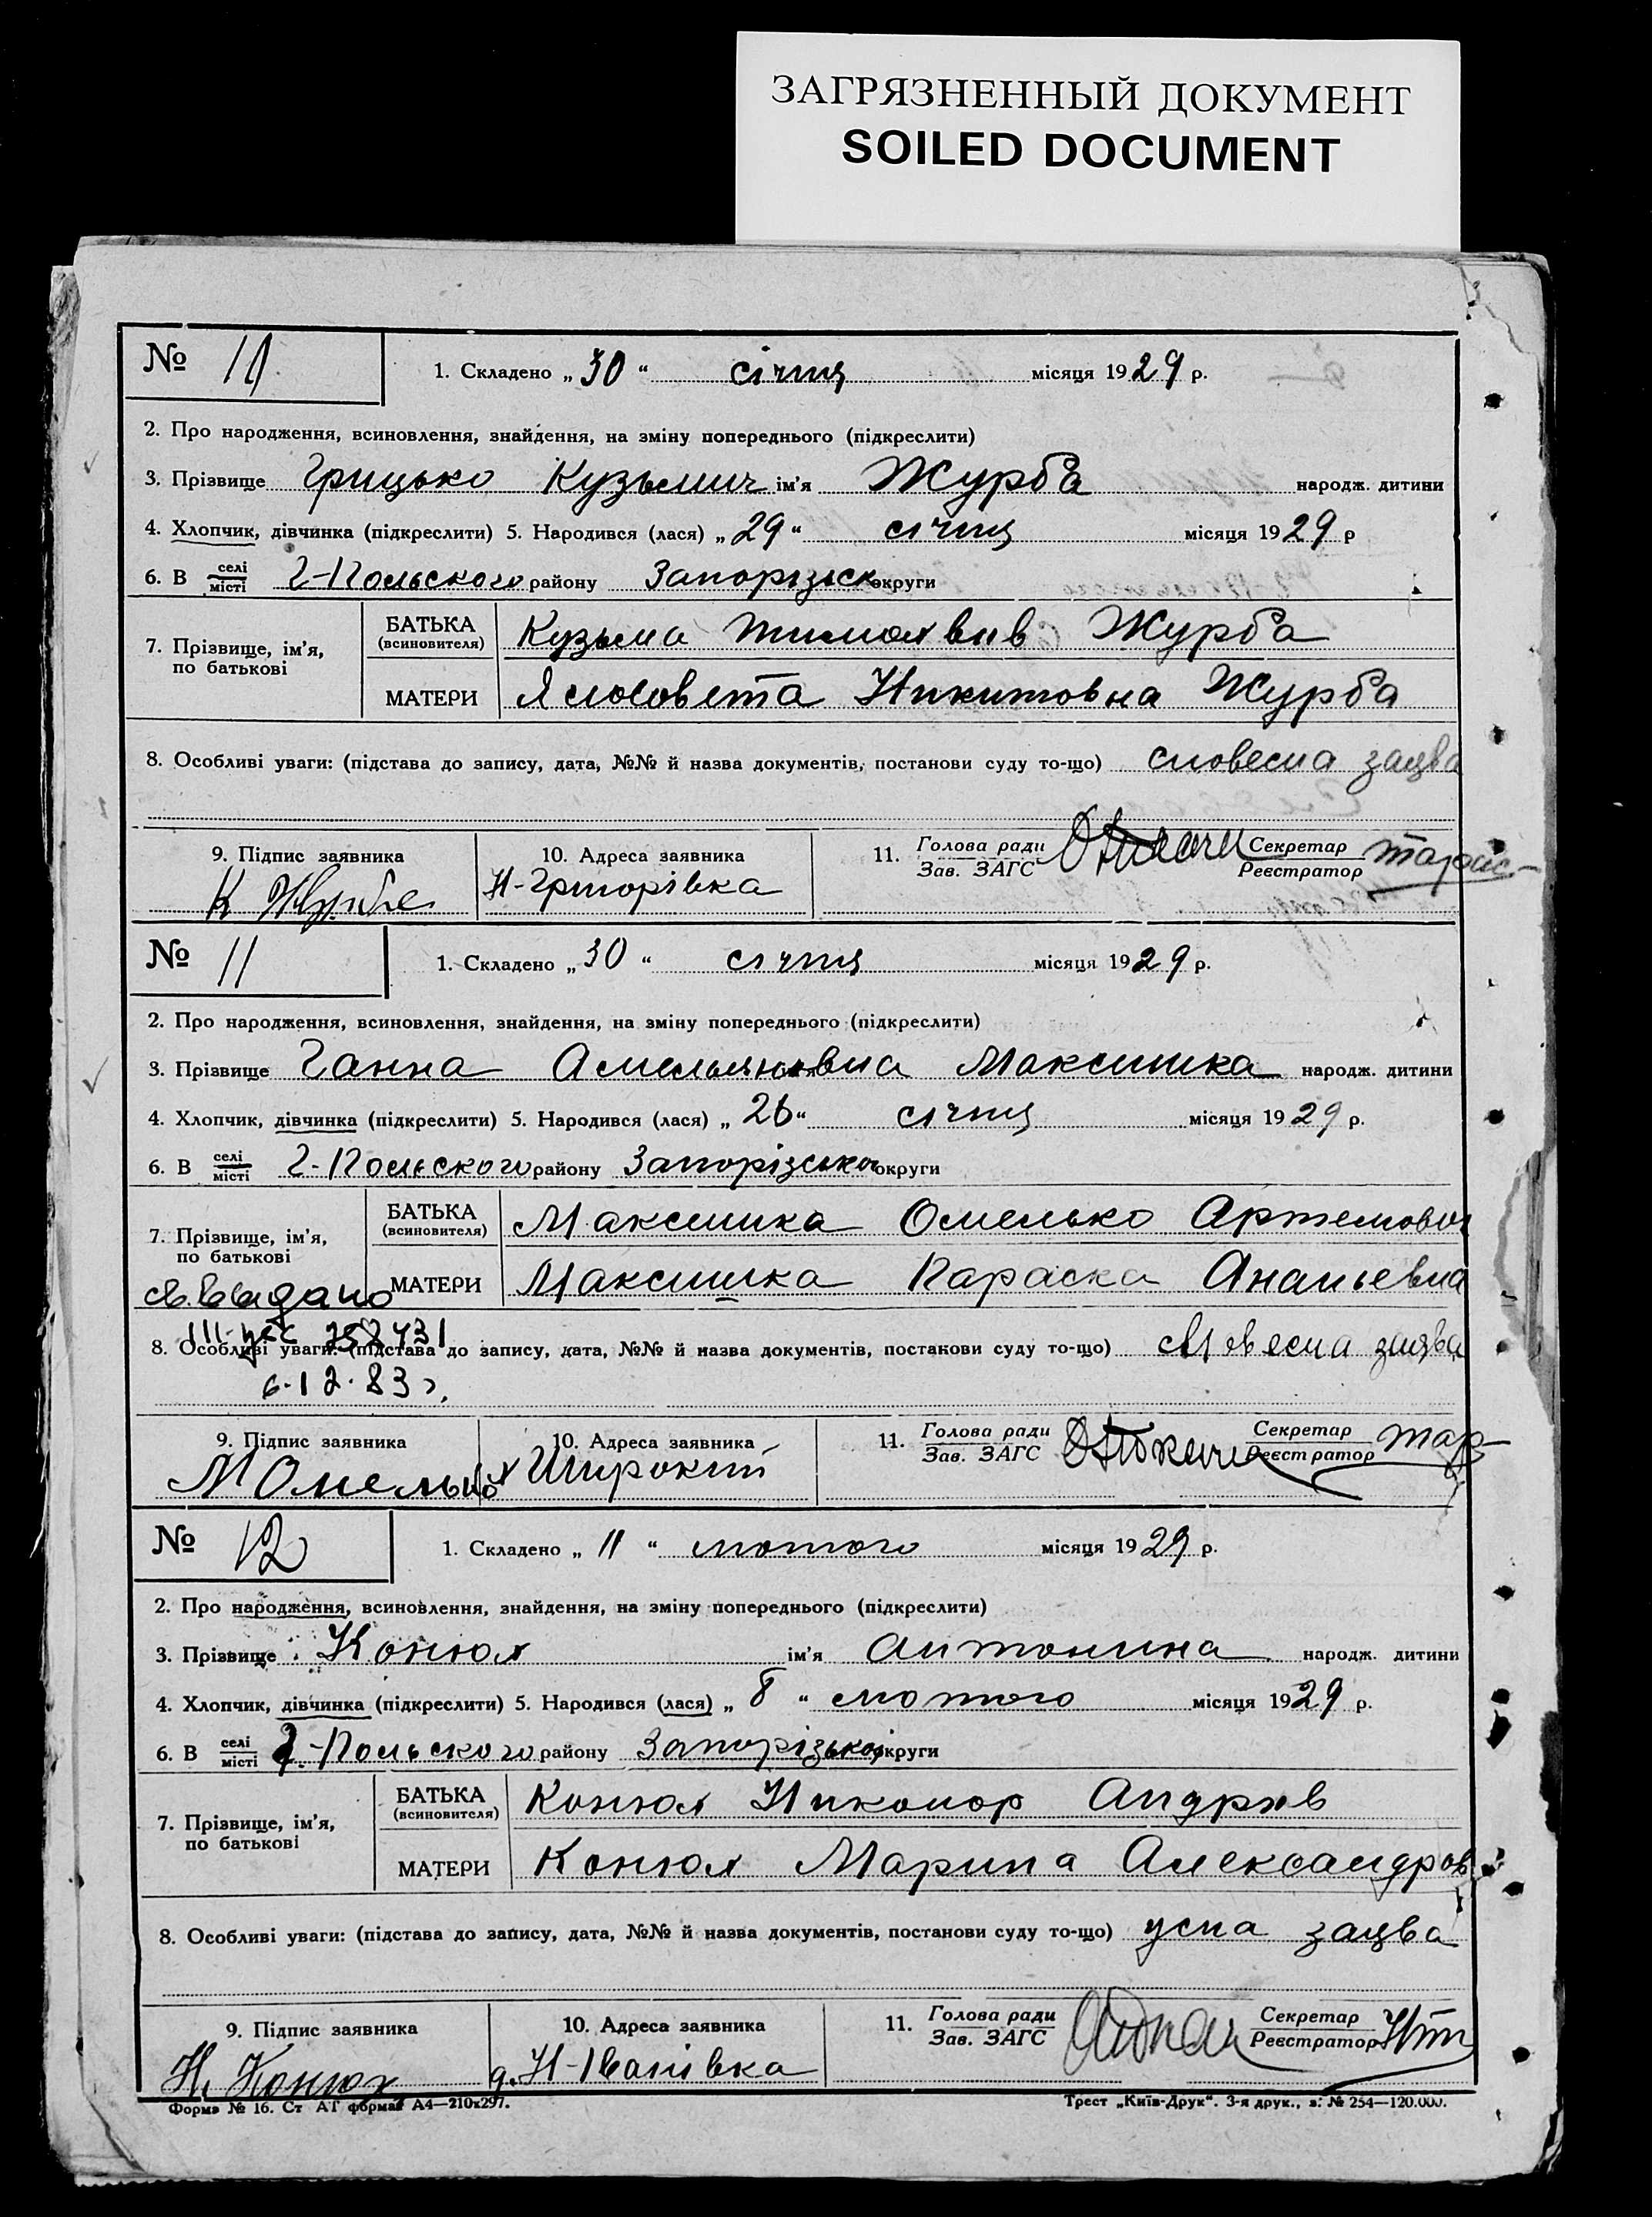 ЗАГРЯЗНЕННЫЙ ДОКУМЕНТ
SOILED DOCUMENT
№ 10
1. Складено „30“ січня місяця 1929 р.
2. Про народження, всиновлення, знайдення, на зміну попереднього (підкреслити)
3. Прізвище Грицько Кузьмич ім'я Журба народж. дитини
4. Хлопчик, дівчинка (підкреслити) 5. Народився (лася) „29“ січня місяця 1929 р
6. В селі/місті Г-Польского району Запорізьк округи
7. Прізвище, ім'я, по батькові
БАТЬКА (всиновителя) Кузьма Журба
МАТЕРИ Никитовна Журба
8. Особливі уваги: (підстава до запису, дата, №№ й назва документів, постанови суду то-що) словесна заява
9. Підпис заявника К Журба
10. Адреса заявника Н-Григорівка
11. Голова ради
Зав. ЗАГС
Секретар
Реєстратор
№ 11
1. Складено „30“ січня місяця 1929 р.
2. Про народження, всиновлення, знайдення, на зміну попереднього (підкреслити)
3. Прізвище Ганна Амельяновна Максишка народж. дитини
4. Хлопчик, дівчинка (підкреслити) 5. Народився (лася) „26“ січня місяця 1929 р.
6. В селі/місті Г-Польского району Запорізько округи
7. Прізвище, ім'я, по батькові
БАТЬКА (всиновителя) Максишка Омелько Артемович
МАТЕРИ Максишка Параска Ананьевна
св. выдано
III-
6.12.83 г.
8. Особливі уваги: (підстава до запису, дата, №№ й назва документів, постанови суду то-що) словесна заява
9. Підпис заявника М Омелько
10. Адреса заявника х Широкий
11. Голова ради
Зав. ЗАГС
Секретар
Реєстратор
№ 12
1. Складено „11“ лютого місяця 1929 р.
2. Про народження, всиновлення, знайдення, на зміну попереднього (підкреслити)
3. Прізвище Конюх ім'я Антонина народж. дитини
4. Хлопчик, дівчинка (підкреслити) 5. Народився (лася) „8“ лютого місяця 1929 р.
6. В селі/місті Г-Польского району Запорізької округи
7. Прізвище, ім'я, по батькові
БАТЬКА (всиновителя) Конюх Никонор Андрів
МАТЕРИ Конюх Марина Александров
8. Особливі уваги: (підстава до запису, дата, №№ й назва документів, постанови суду то-що) усна заява
9. Підпис заявника Н. Конюх
10. Адреса заявника д. Н-Іванівка
11. Голова ради
Зав. ЗАГС
Секретар
Реєстратор
Форма № 16. Ст АТ формат А4—210х297.
Трест „Київ-Друк“. 3-я друк., з. № 254—120.000.